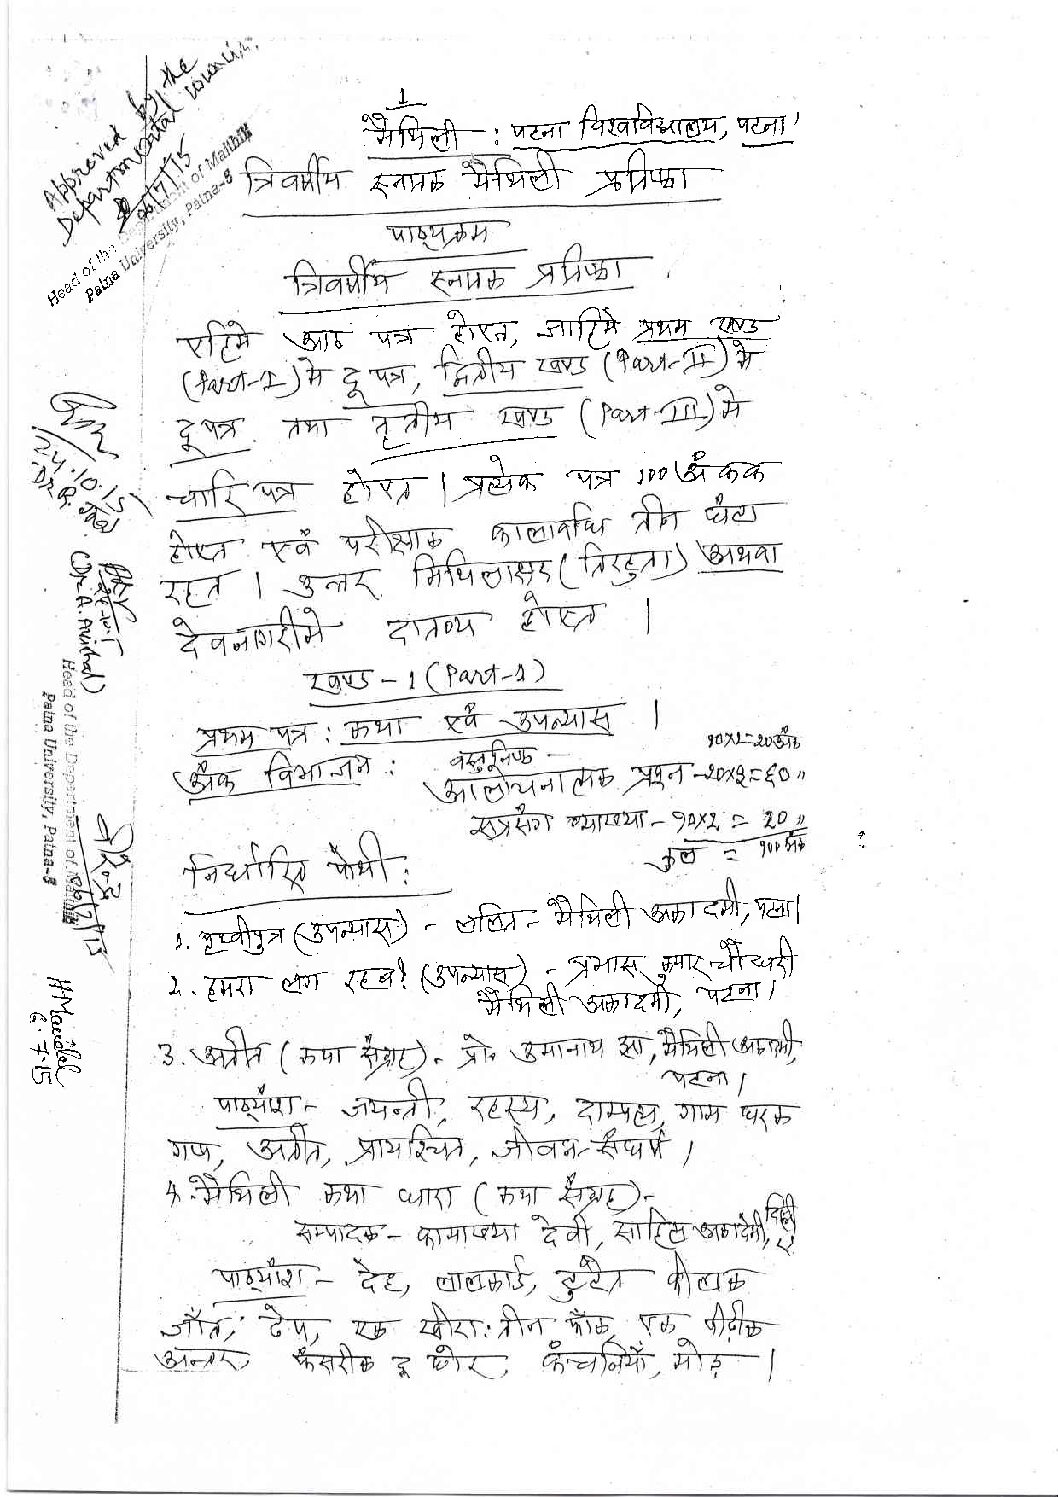 1
मैथिली : पटना विश्वविद्यालय, पटना'
त्रिवर्षीय स्नातक मैथिली प्रतिष्ठा
पाठ्यक्रम
त्रिवर्षीय स्नातक प्रतिष्ठा
एहिमे आठ पत्र होएत, जाहिमे प्रथम खण्ड
(Part-I) मे दू पत्र, द्वितीय खण्ड (Part-II) मे
दू पत्र तथा तृतीय खण्ड (Part-III) मे
चारि पत्र होएत । प्रत्येक पत्र 100 अंकक
होएत एवं परीक्षाक कालावधि तीन घंटा
रहत । उत्तर मिथिलाक्षर (तिरहुता) अथवा
देवनागरीमे दातव्य होएत ।
खण्ड-1 (Part-1)
प्रथम पत्र : कथा एवं उपन्यास ।
अंक विभाजन : वस्तुनिष्ठ - १०x२=२० अंक
आलोचनात्मक प्रश्न - २०x३=६० "
सप्रसंग व्याख्या - १०x२ = 20 "
कुल = १०० अंक
निर्धारित पोथी :
1. पृथ्वीपुत्र (उपन्यास) - ललित - मैथिली अकादमी, पटना ।
2. हमरा लग रहब? (उपन्यास) - प्रभास कुमार चौधरी
मैथिली अकादमी, पटना ।
3. अतीत (कथा संग्रह) - प्रो० उमानाथ झा, मैथिली अकादमी,
पटना ।
पाठ्यांश - जयन्ती, रहस्य, दाम्पत्य, गाम घरक
गप्प, अतीत, प्रायश्चित, जीवन-संघर्ष ।
4. मैथिली कथा धारा (कथा संग्रह) -
सम्पादक - कामाख्या देवी, साहित्य अकादेमी, दिल्ली
पाठ्यांश - देह, लालकार्ड, टुटैत कीलक
जाँत, ढेप, एक खीरा : तीन फाँक, एक पीढ़ीक
अन्तर, केसरीक दू छोर, कंचनियाँ, मोड़ ।
Approved by the
Departmental Council.
06/7/15
Head of the Department of Maithili
Patna University, Patna-5
24.10.15
(Dr. A. Avinhal)
Head of the Department of Maithili
Patna University, Patna-5
H Mandal
6-7-15